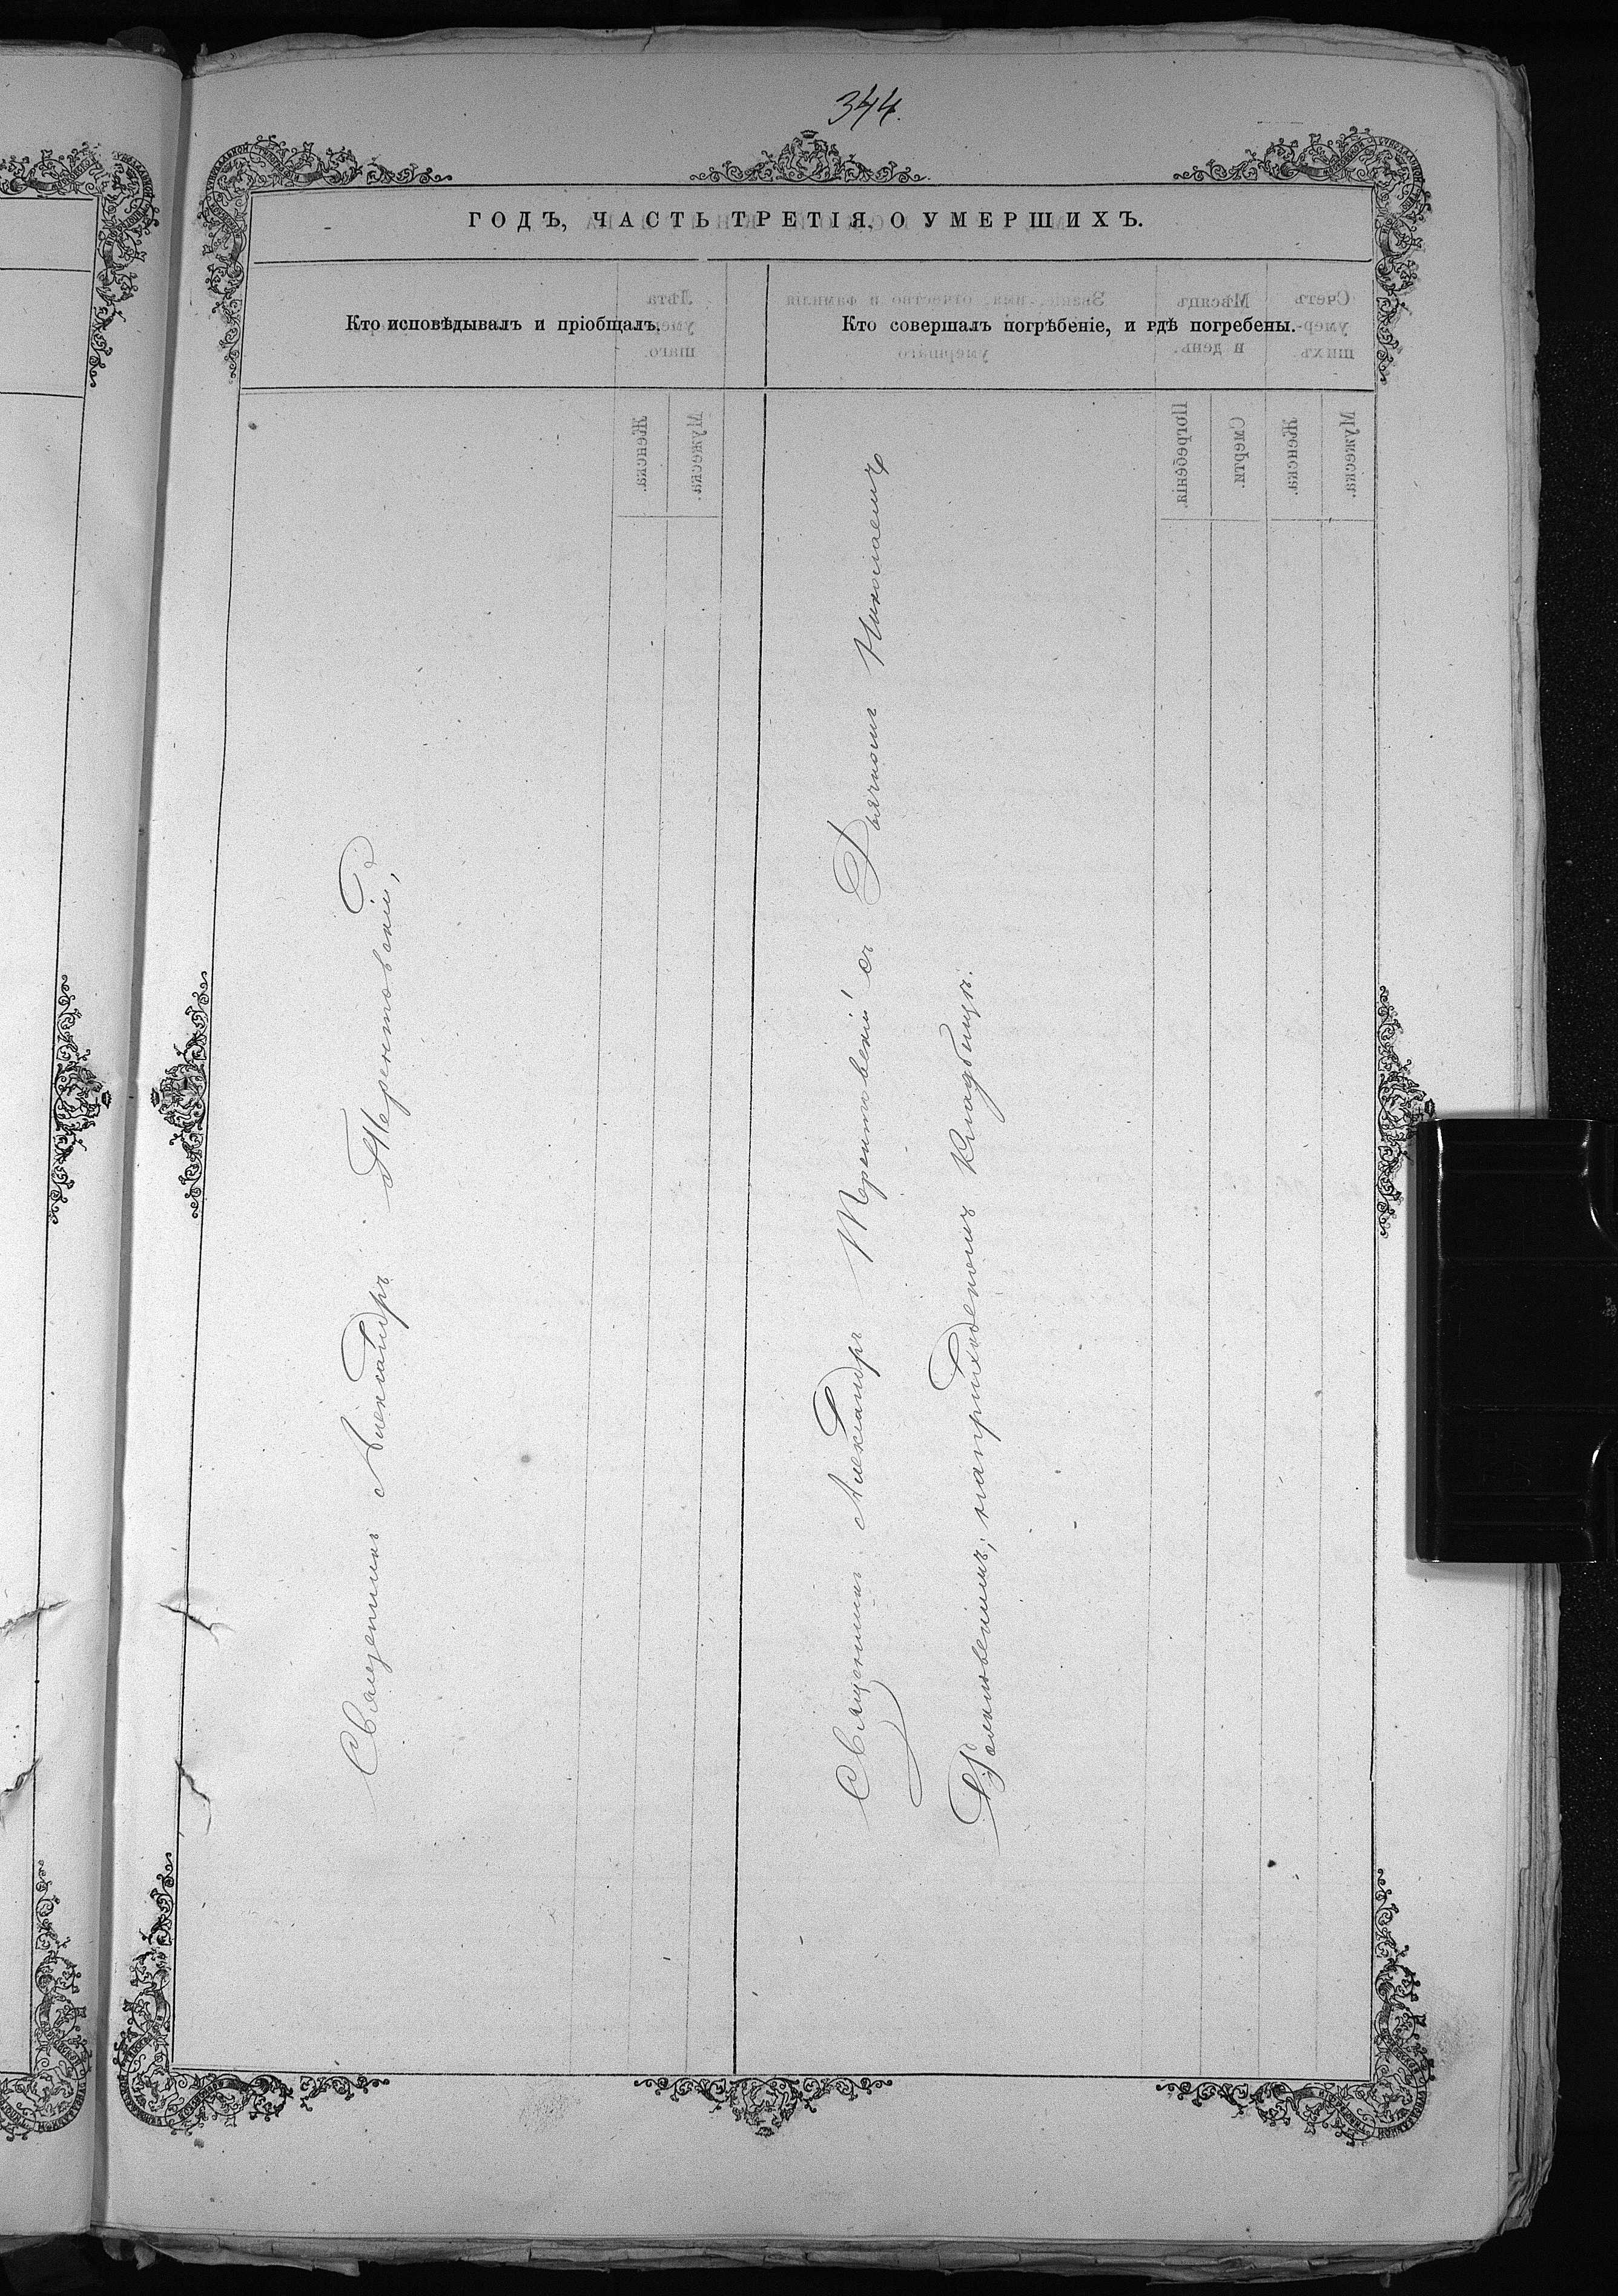 344.
ГОДЪ, ЧАСТЬ ТРЕТІЯ, О УМЕРШИХЪ.
Кто исповѣдывалъ и пріобщалъ.
Кто совершалъ погрѣбеніе, и гдѣ погребены.
Священникъ Александръ Терентовскій,
Священникъ Александръ Терентовскій съ Дьячкомъ Николаемъ
наприходскомъ кладбищѣ.